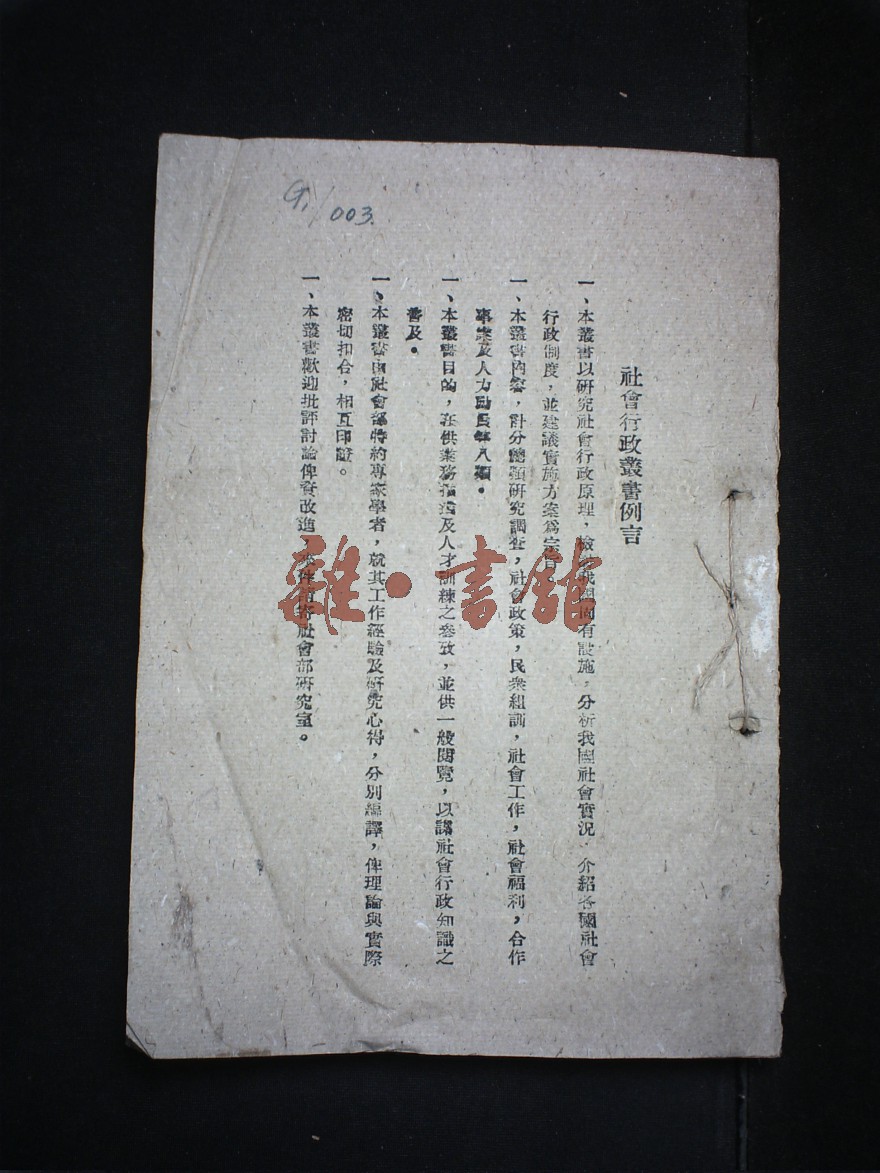 社會行政叢書例言
一、本叢書以研究社會行政原理，檢我國固有設施，分析我國社會實況，介紹各國社會
行政制度，並建議實施方案為宗旨。
一、本叢書內容，計分總類研究調查，社會政策，民衆組訓，社會工作，社會福利，合作
事業及人力動員等八類。
一、本叢書目的，在供業務指導及人才訓練之參攷，並供一般閱覽，以謀社會行政知識之
普及。
一、本叢書由社會部特約專家學者，就其工作經驗及研究心得，分別編譯，俾理論與實際
密切扣合，相互印證。
一、本叢書歡迎批評討論俾資改進，來件請寄社會部研究室。
G1/003.
雜·書館